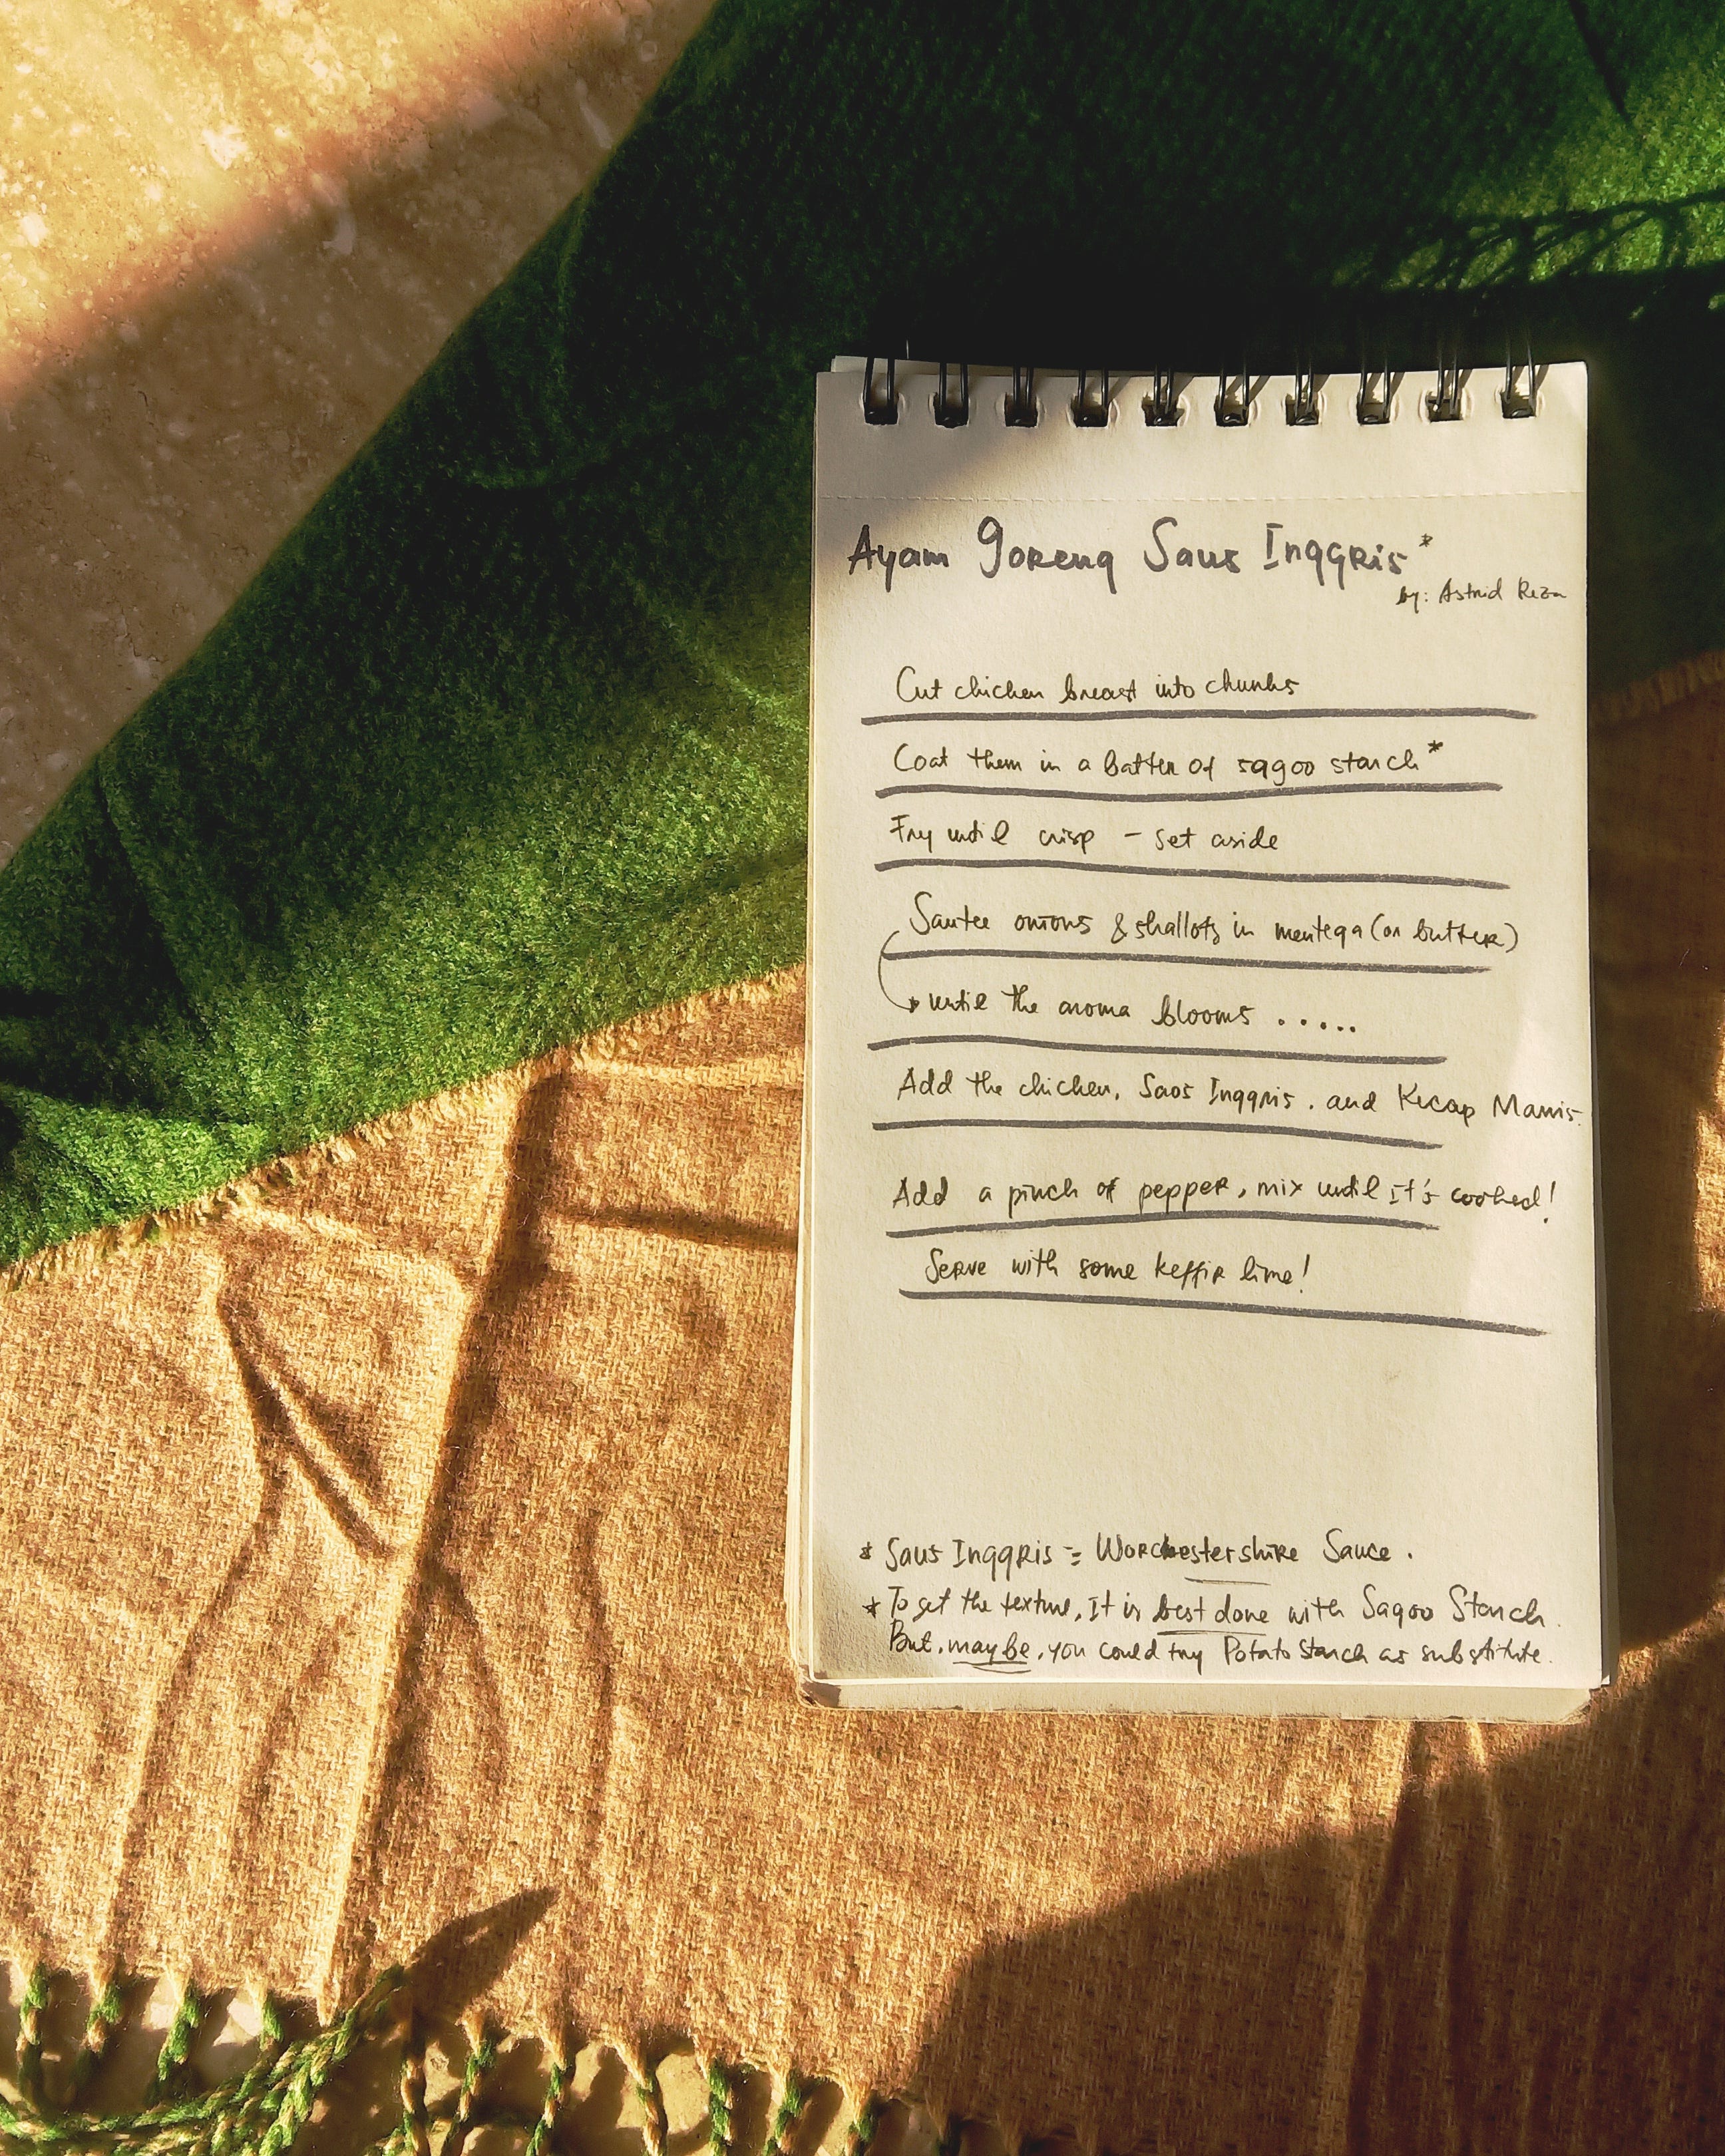 Ayam Goreng Saus Inggris*
by: Astrid Reza
Cut chicken breast into chunks
Coat them in a batter of sagoo starch*
Fry until crisp - set aside
Sautee onions & shallots in mentega (or butter)
until the aroma blooms .....
Add the chicken, Saos Inggris, and Kecap Manis.
Add a pinch of pepper, mix until it's cooked!
Serve with some keffir lime!
* Saus Inggris = Worchestershire Sauce.
* To get the texture, it is best done with Sagoo Starch.
But, maybe, you could try Potato Starch as substitute.